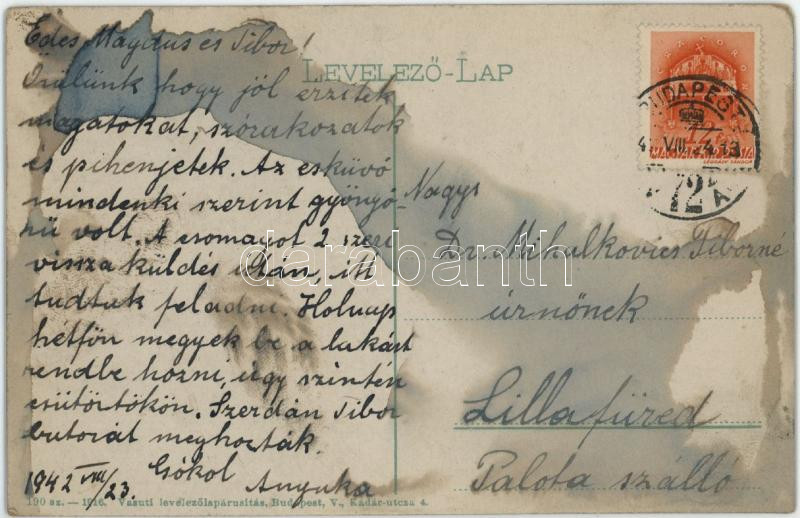 Édes Magdus és Tibor!
Örülünk hogy jól érzitek
magatokat, szórakozatok
és pihenjetek. Az esküvő
mindenki szerint gyönyö-
rű volt. A csomagot 2 szeri
vissza küldés után, itt
tudtuk feladni. Holnap
hétfőn megyek be a lakást
rendbe hozni, úgy szintén
csütörtökön. Szerdán Tibor
butorát meghozták.
Csókol
1942 VIII/23. Anyuka
190 sz. — 1916. Vasuti levelezőlapárusitás, Budapest, V., Kádár-utcza 4.
LEVELEZŐ-LAP
Nagys
Dr. Mihulkovics Tiborné
úrnőnek
Lillafüred
Palota szálló
BUDAPEST
VIII. 24. 13
72
darabanth